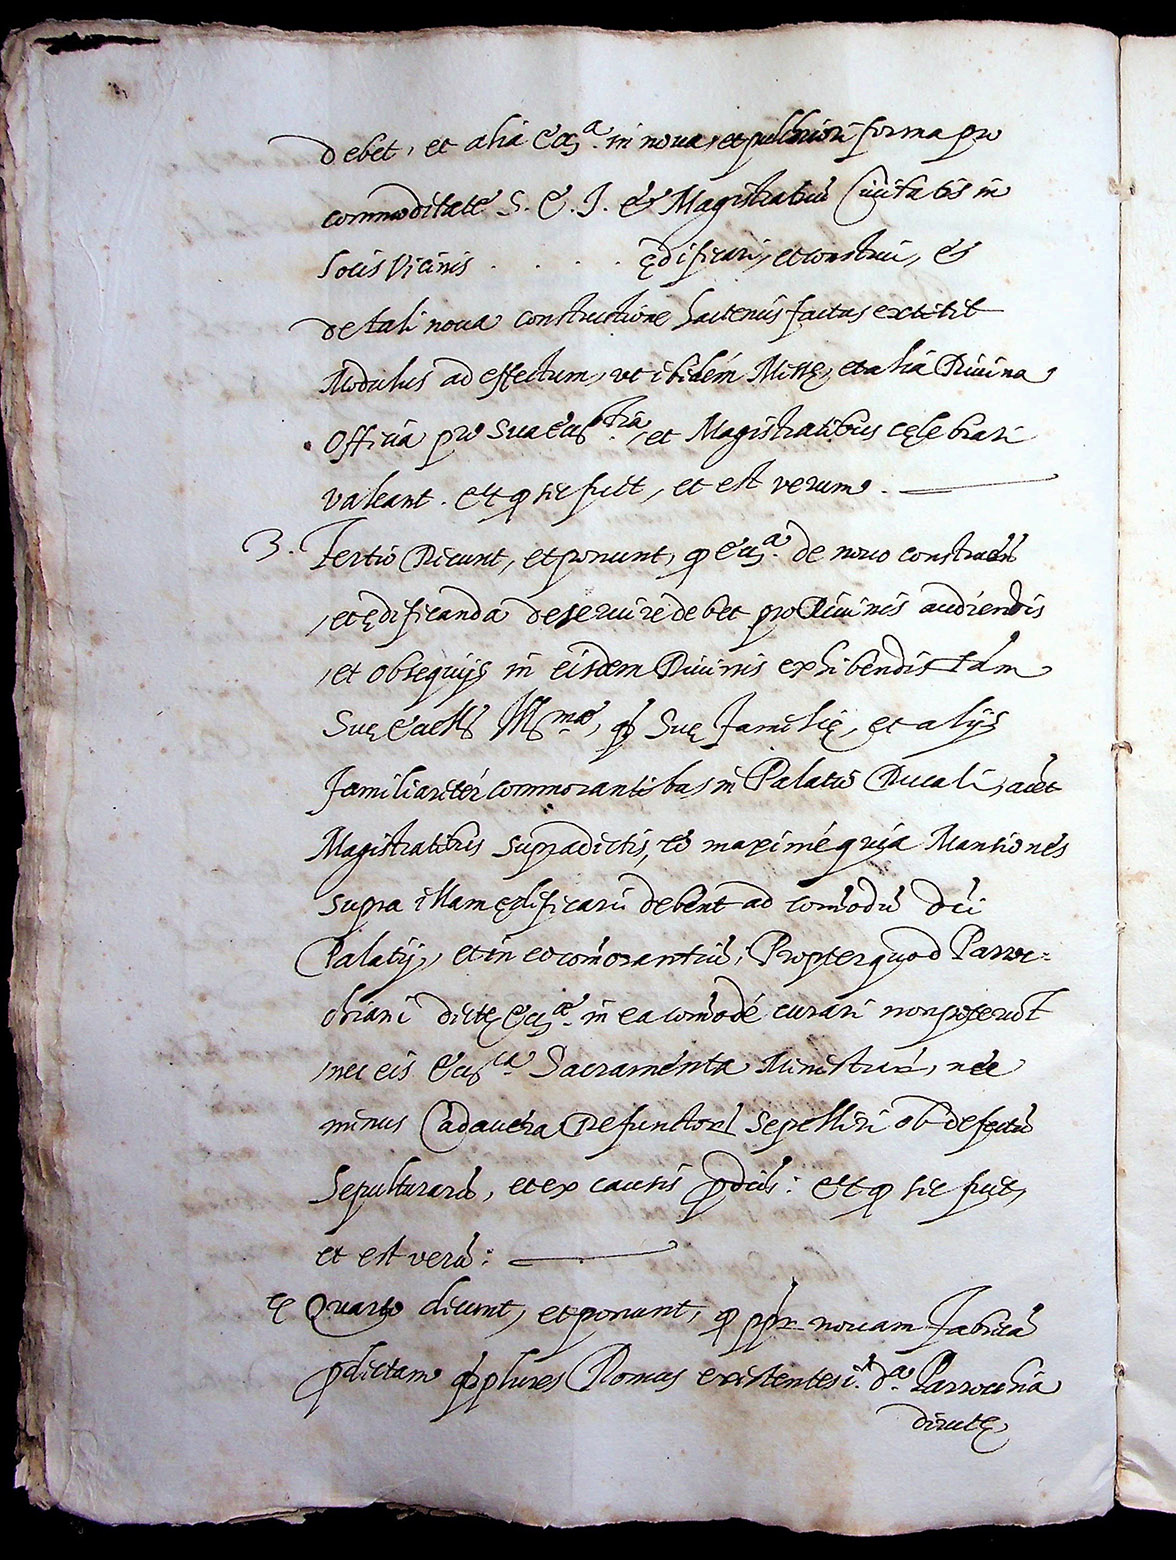 debet, et alia Eccl.ᵃ in noua, et pulchriori forma pro
commoditate S. E. I. & Magistratuũ Ciuitatis in
locis Vicinis . . . . ędificari, et construi, &
de tali noua constructione hactenus factus extitit
Modulus ad effectum, vt ibidém Missę, et alia Diuina
Officia pro Sua Ex.ᵗⁱᵃ, et Magistratibus cęlebrari
valeant. Et q̃ sic fuit, et est verum.
3. Tertio Dicunt, et ponunt, q̃ Eccl.ᵃ de nouo
et ędificanda deseruire debet pro Diuinis audiendis
et obsequijs in eisdem Diuinis exhibendis tàm
Suę Ill.ᵐᵃᵉ, Suę Familię, et alijs
familiaritér commorantibus in Palatio Ducali,
Magistratibus supradictis, eò maximé quia Mansiones
supra illam ędificari debent ad com̃odũ dĩ
Palatij, et in eo com̃orantiũ; Propterquod Parro-
chiani dictę Eccl.ᵉ in ea com̃odé curari non poterũt
nec eis Eccl.ᶜᵃ Sacramenta Ministrari, nec
minus Cadauera Defunctorũ Sepelliri ob defectũ
Sepulturarũ, et ex causis p̃dictis: Et q̃ sic fuit,
et est verũ:
4 Quarto dicunt, et ponunt, q̃ pp̃r nouam Fabricã
p̃dictam plures Domus existentes i.ⁿ d.ᵃ Parrochia
dirutę